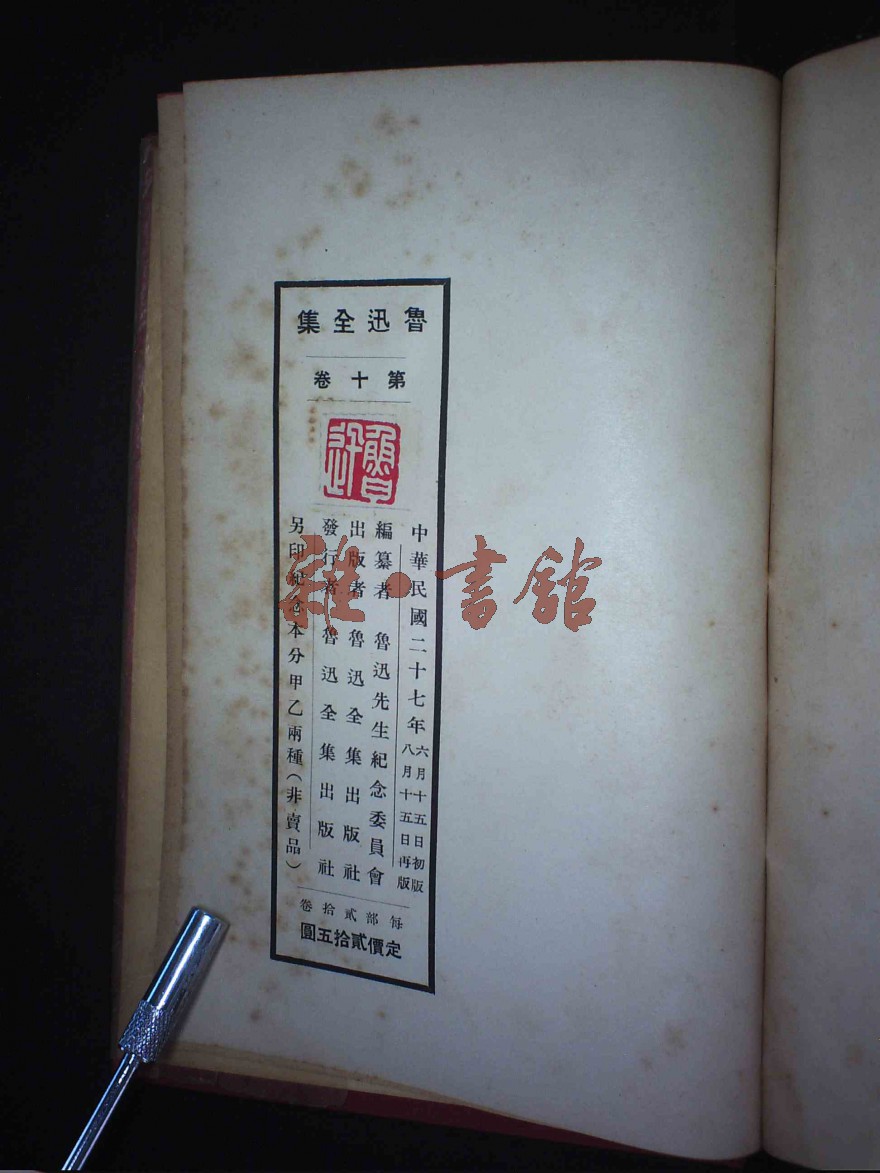 魯迅全集
第十卷
魯迅
中華民國二十七年六月十五日初版
八月十五日再版
編纂者 魯迅先生紀念委員會
出版者 魯迅全集出版社
發行者 魯迅全集出版社
另印紀念本分甲乙兩種(非賣品)
每部貳拾卷
定價貳拾五圓
雜·書館